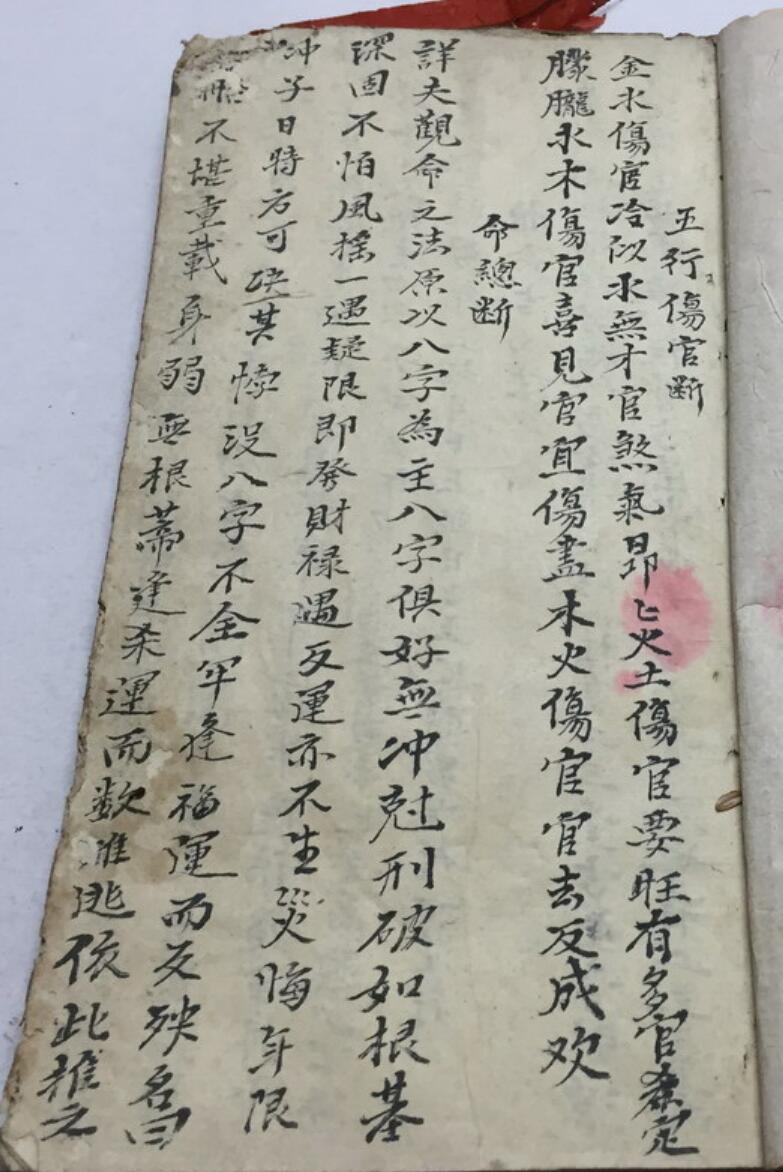 五行傷官断
金水傷官冷似氷無才官煞氣昂〻火土傷官要旺有多官煞定
朦朧水木傷官喜見官宜傷盡木火傷官官去反成欢
命總断
詳夫觀命之法原以八字為主八字俱好無冲尅刑破如根基
深固不怕風搖一遇疑限即發財禄遇反運亦不生災悔年限
冲子日時方可决其悽没八字不全罕逢福運而反殃名曰
不堪重載身弱無根蒂逢杀運而数難逃依此推之